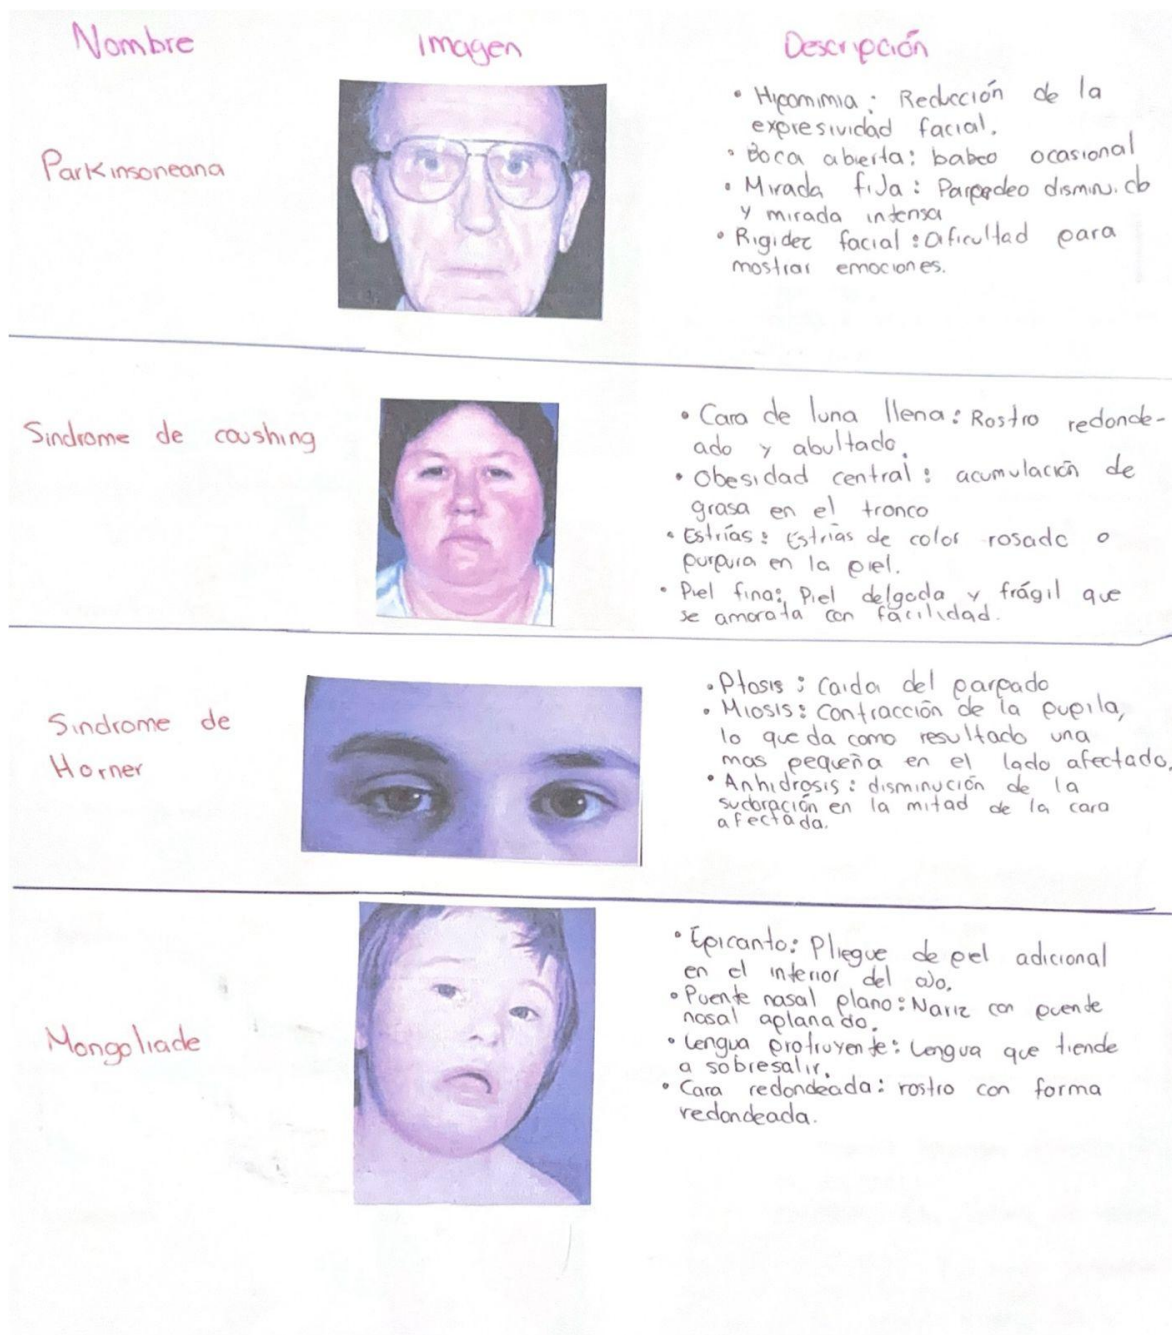 Nombre Imagen Descripción
Parkinsoneana
• Hipomimia: Reducción de la
expresividad facial.
• Boca abierta: babeo ocasional
• Mirada fija: Parpadeo disminuido
y mirada intensa
• Rigidez facial: Dificultad para
mostrar emociones.
Sindrome de coushing
• Cara de luna llena: Rostro redonde-
ado y abultado.
• Obesidad central: acumulación de
grasa en el tronco
• Estrías: Estrías de color rosado o
purpura en la piel.
• Piel fina: Piel delgada y frágil que
se amorata con facilidad.
Sindrome de
Horner
• Ptosis: Caida del parpado
• Miosis: Contracción de la pupila,
lo que da como resultado una
mas pequeña en el lado afectado.
• Anhidrosis: disminución de la
sudoración en la mitad de la cara
afectada.
Mongoliade
• Epicanto: Pliegue de piel adicional
en el interior del ojo.
• Puente nasal plano: Nariz con puente
nasal aplanado.
• Lengua protruyente: Lengua que tiende
a sobresalir.
• Cara redondeada: rostro con forma
redondeada.